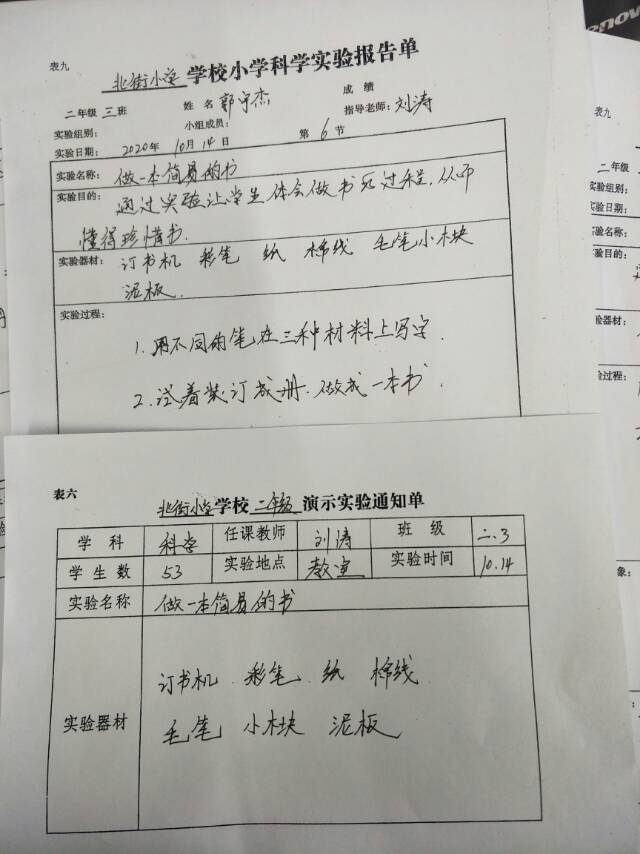 表九
北街小学 学校小学科学实验报告单
成 绩
二年级 三班 姓 名 郭宇杰 指导老师：刘涛
实验组别： 小组成员：
实验日期： 2020年 10月 14日 第 6 节
实验名称： 做一本简易的书
实验目的： 通过实验让学生体会做书的过程，从而
懂得珍惜书.
实验器材： 订书机 彩笔 纸 棉线 毛笔 小木块
泥板.
实验过程：
1. 用不同的笔在三种材料上写字.
2. 试着装订成册. 做成一本书
表六
北街小学 学校 二年级 演示实验通知单
学 科 科学 任课教师 刘涛 班 级 二.3
学 生 数 53 实验地点 教室 实验时间 10.14
实验名称 做一本简易的书
实验器材 订书机 彩笔 纸 棉线
毛笔 小木块 泥板
表九
二年级
实验组别：
实验日期：
实验名称：
实验目的：
验器材：
验过程：
象：